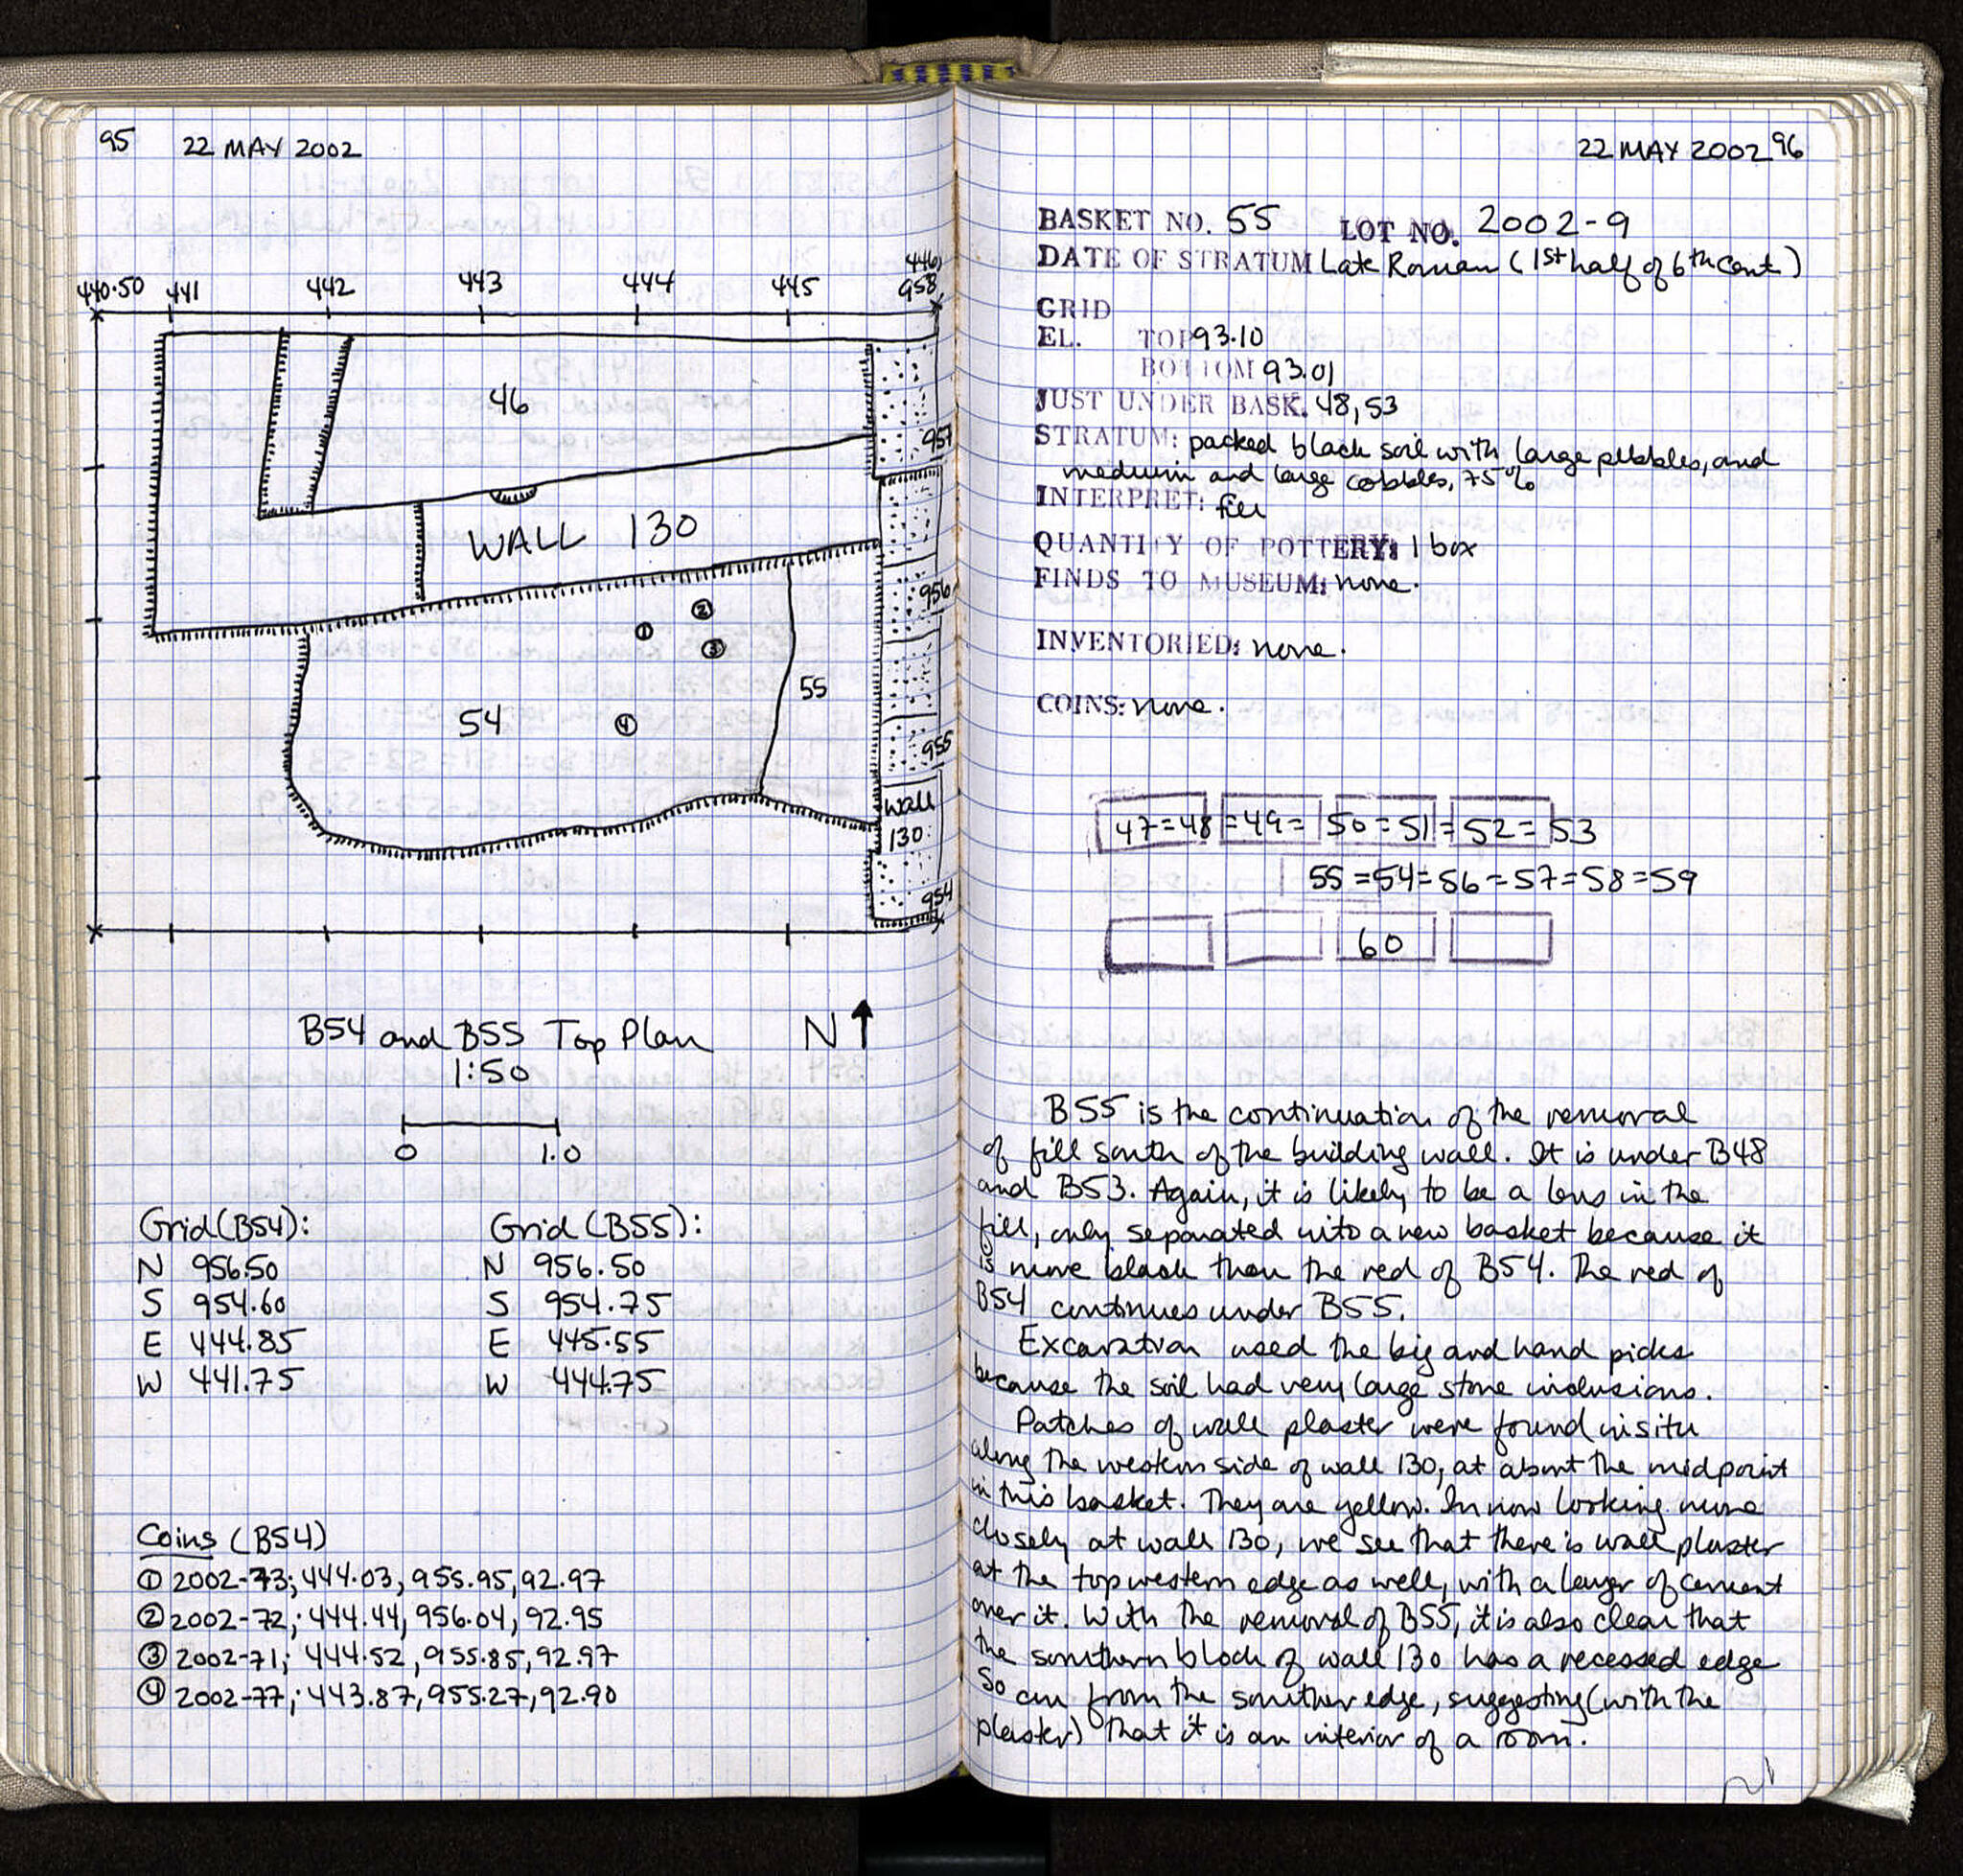 95 22 MAY 2002
440.50 441 442 443 444 445 446,
958
46
957
WALL 130
956
②
①
③
55
54
④
955
wall
130
954
B54 and B55 Top Plan N↑
1:50
0 1.0
Grid (B54): Grid (B55):
N 956.50 N 956.50
S 954.60 S 954.75
E 444.85 E 445.55
W 441.75 W 444.75
Coins (B54)
① 2002-73; 444.03, 955.95, 92.97
② 2002-72; 444.44, 956.04, 92.95
③ 2002-71; 444.52, 955.85, 92.97
④ 2002-77; 443.87, 955.27, 92.90
22 MAY 2002 96
BASKET NO. 55 LOT NO. 2002-9
DATE OF STRATUM Late Roman (1st half of 6th cent)
GRID
EL. TOP 93.10
BOTTOM 93.01
JUST UNDER BASK. 48, 53
STRATUM: packed black soil with large pebbles, and
medium and large cobbles, 75%
INTERPRET: fill
QUANTITY OF POTTERY: 1 box
FINDS TO MUSEUM: none.
INVENTORIED: none.
COINS: none.
47=48=49=50=51=52=53
55=54=56=57=58=59
60
B55 is the continuation of the removal
of fill south of the building wall. It is under B48
and B53. Again, it is likely to be a lens in the
fill, only separated into a new basket because it
is more black than the red of B54. The red of
B54 continues under B55.
Excavation used the big and hand picks
because the soil had very large stone inclusions.
Patches of wall plaster were found in situ
along the western side of wall 130, at about the midpoint
in this basket. They are yellow. In now looking more
closely at wall 130, we see that there is wall plaster
at the top western edge as well, with a layer of cement
over it. With the removal of B55, it is also clear that
the southern block of wall 130 has a recessed edge
50 cm from the souther edge, suggesting (with the
plaster) that it is an interior of a room.